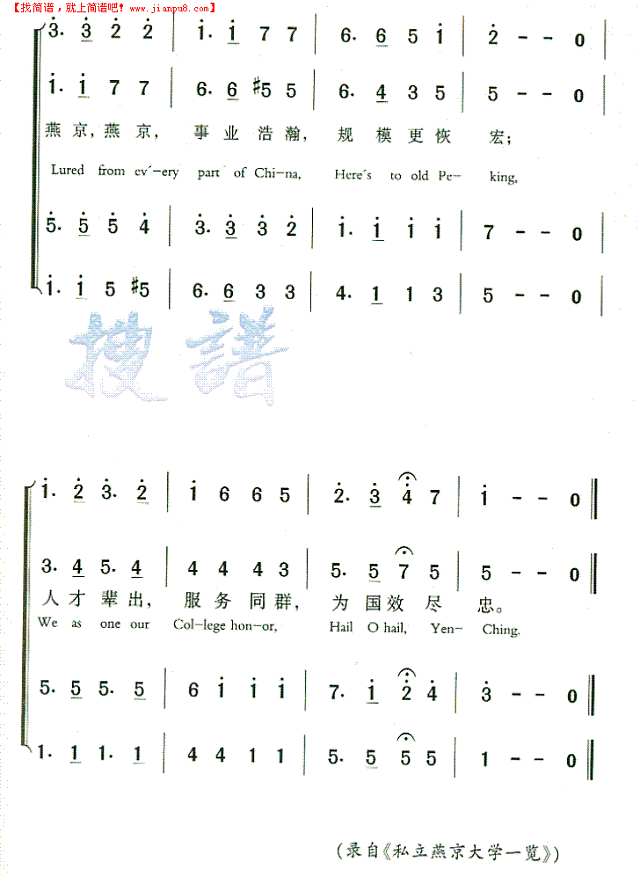 【找简谱，就上简谱吧！www.jianpu8.com】
3. 3 2 2 | 1. 1 7 7 | 6. 6 5 1 | 2 - - 0 |
1. 1 7 7 | 6. 6 #5 5 | 6. 4 3 5 | 5 - - 0 |
燕京，燕京， 事业浩瀚， 规模更恢 宏；
Lured from ev´-ery part´ of Chi-na, Here´s to old Pe- king,
5. 5 5 4 | 3. 3 3 2 | 1. 1 1 1 | 7 - - 0 |
1. 1 5 #5 | 6. 6 3 3 | 4. 1 1 3 | 5 - - 0 |
搜谱
1. 2 3. 2 | 1 6 6 5 | 2. 3 4 7 | 1 - - 0 ‖
3. 4 5. 4 | 4 4 4 3 | 5. 5 7 5 | 5 - - 0 ‖
人才辈出， 服务同群， 为国效尽 忠。
We as one our Col-lege hon-or, Hail O hail, Yen- Ching.
5. 5 5. 5 | 6 1 1 1 | 7. 1 2 4 | 3 - - 0 ‖
1. 1 1. 1 | 4 4 1 1 | 5. 5 5 5 | 1 - - 0 ‖
(录自《私立燕京大学一览》)